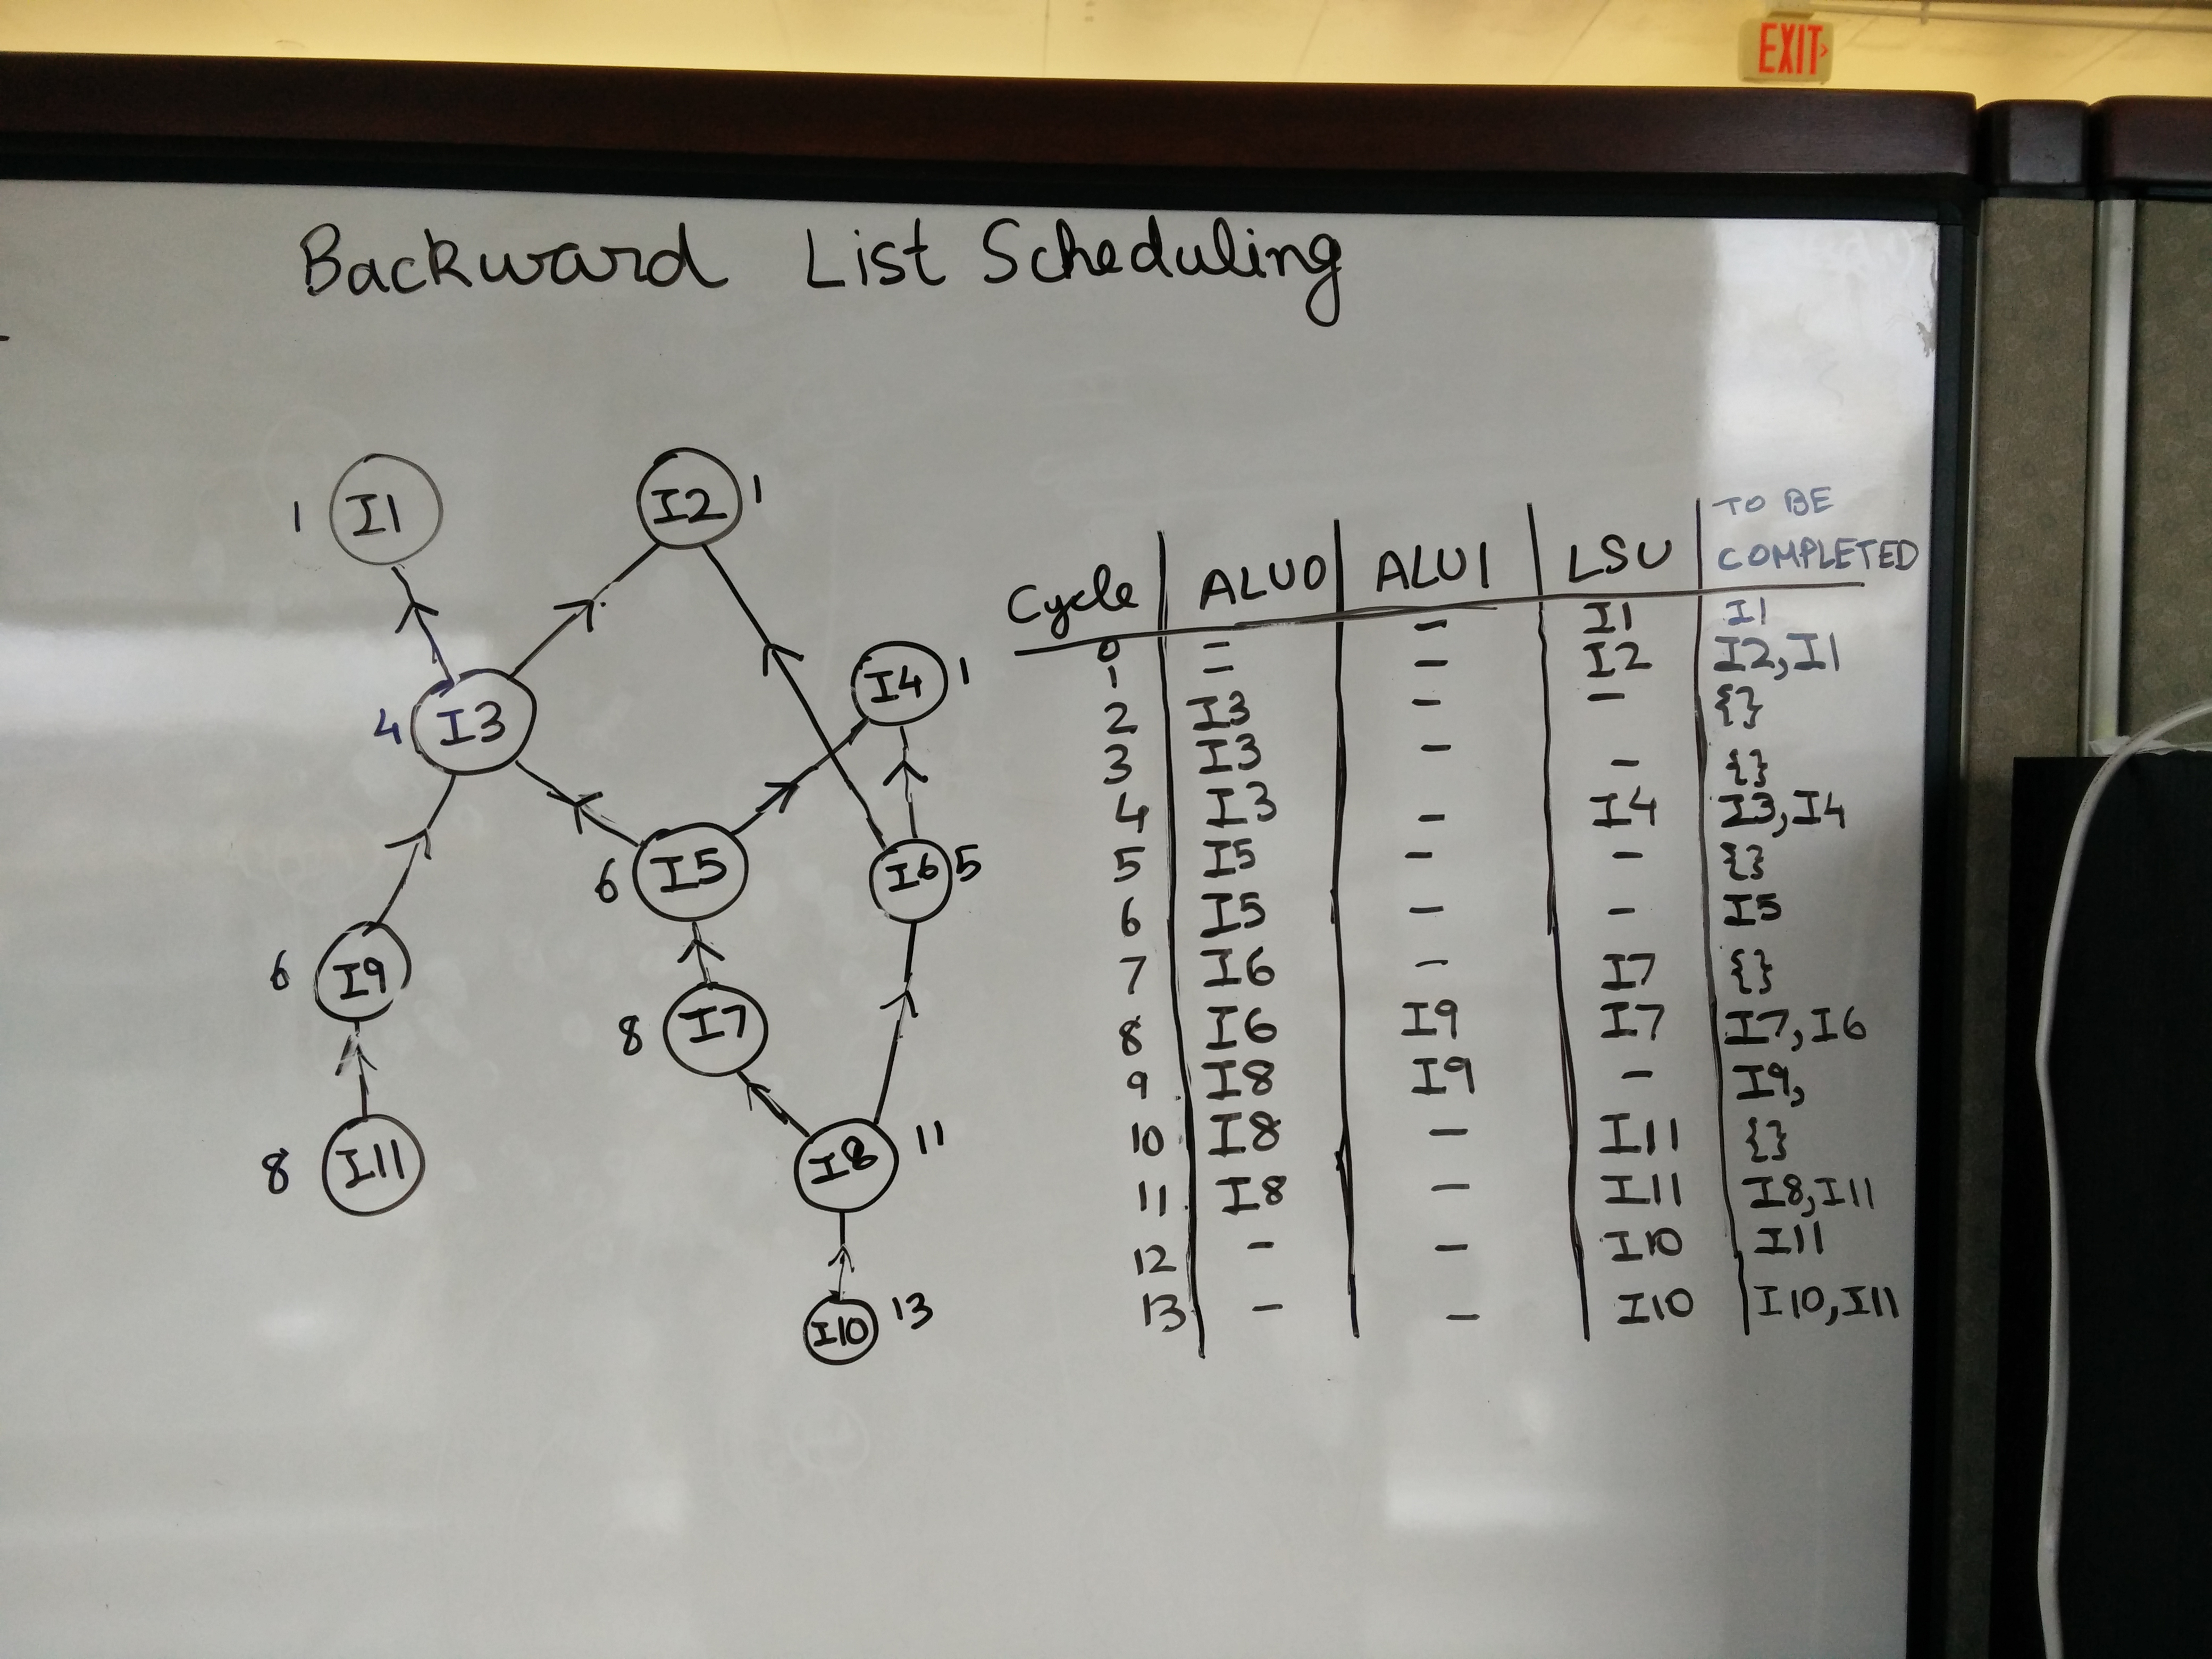 EXIT
Backward List Scheduling
1 I1
I2 1
I4 1
4 I3
6 I5
I6 5
6 I9
8 I7
8 I11
I8 11
I10 13
Cycle ALU0 ALU1 LSU TO BE COMPLETED
0 - - I1 I1
1 - - I2 I2,I1
2 I3 - - {}
3 I3 - - {}
4 I3 - I4 I3,I4
5 I5 - - {}
6 I5 - - I5
7 I6 - I7 {}
8 I6 I9 I7 I7,I6
9 I8 I9 - I9,
10 I8 - I11 {}
11 I8 - I11 I8,I11
12 - - I10 I11
13 - - I10 I10,I11